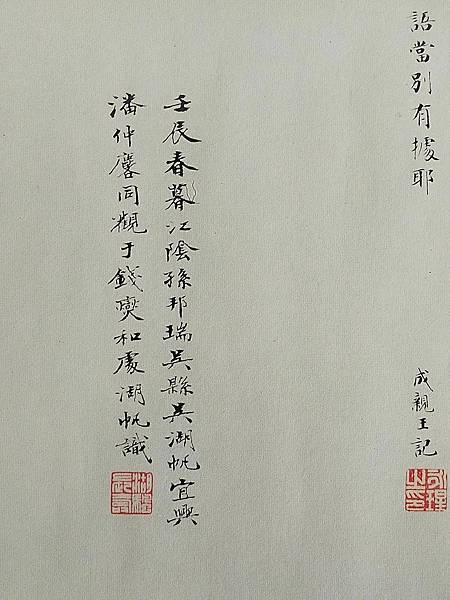 語當別有據耶
成親王記
永瑆之印
壬辰春暮江陰孫邦瑞吳縣吳湖帆宜興
潘仲麐同觀于錢爕和處湖帆識